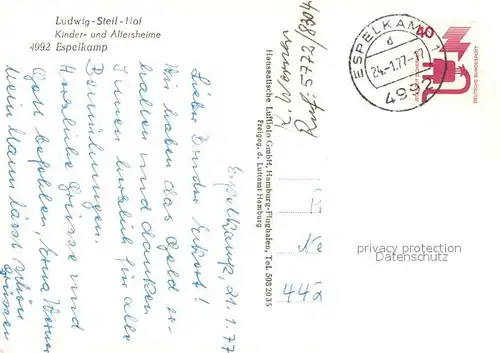 Ludwig-Steil-Hof
Kinder- und Altersheime
4992 Espelkamp
Espelkamp, 21.1.77
Lieber Bruder Eckert!
Wir haben das Geld er-
halten und danken
Ihnen herzlich für alle
Bemühungen.
Herzliche Grüsse und
Gott befohlen, Erna
Mein Mann lässt schön
grüssen
Hanseatische Luftfoto GmbH, Hamburg-Flughafen, Tel. 5082035
Freigeg. d. Luftamt Hamburg
ESPELKAMP 1
d
24.-1.77-17
4992
40
DEUTSCHE BUNDESPOST
442
privacy protection
Datenschutz